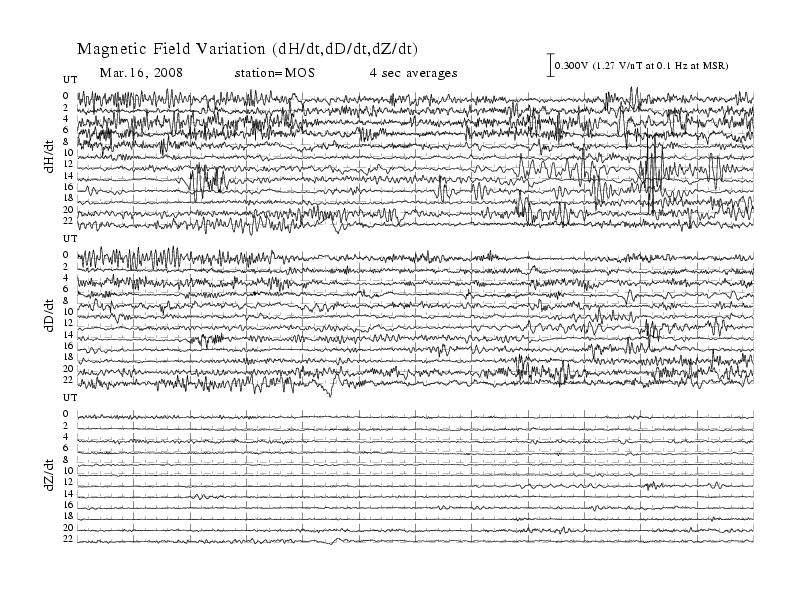 Magnetic Field Variation (dH/dt,dD/dt,dZ/dt)
Mar.16, 2008 station=MOS 4 sec averages
0.300V (1.27 V/nT at 0.1 Hz at MSR)
UT
0
2
4
6
8
10
12
14
16
18
20
22
dH/dt
UT
0
2
4
6
8
10
12
14
16
18
20
22
dD/dt
UT
0
2
4
6
8
10
12
14
16
18
20
22
dZ/dt